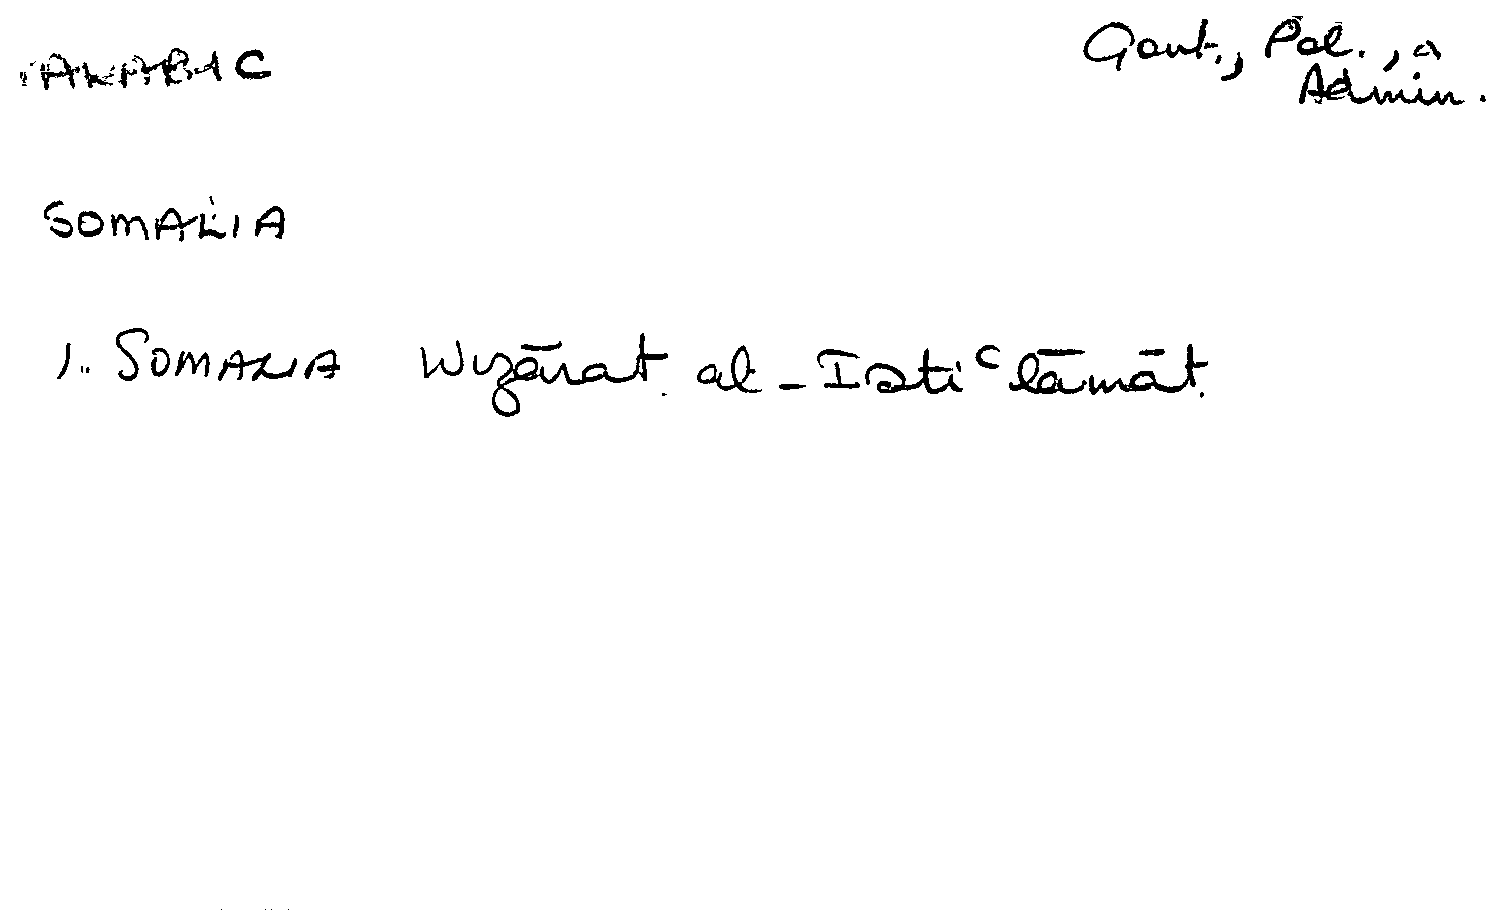 ARABIC
Govt., Pol., a
Admin.
SOMALIA
1. SOMALIA Wizārat al-Istiᶜlāmāt.